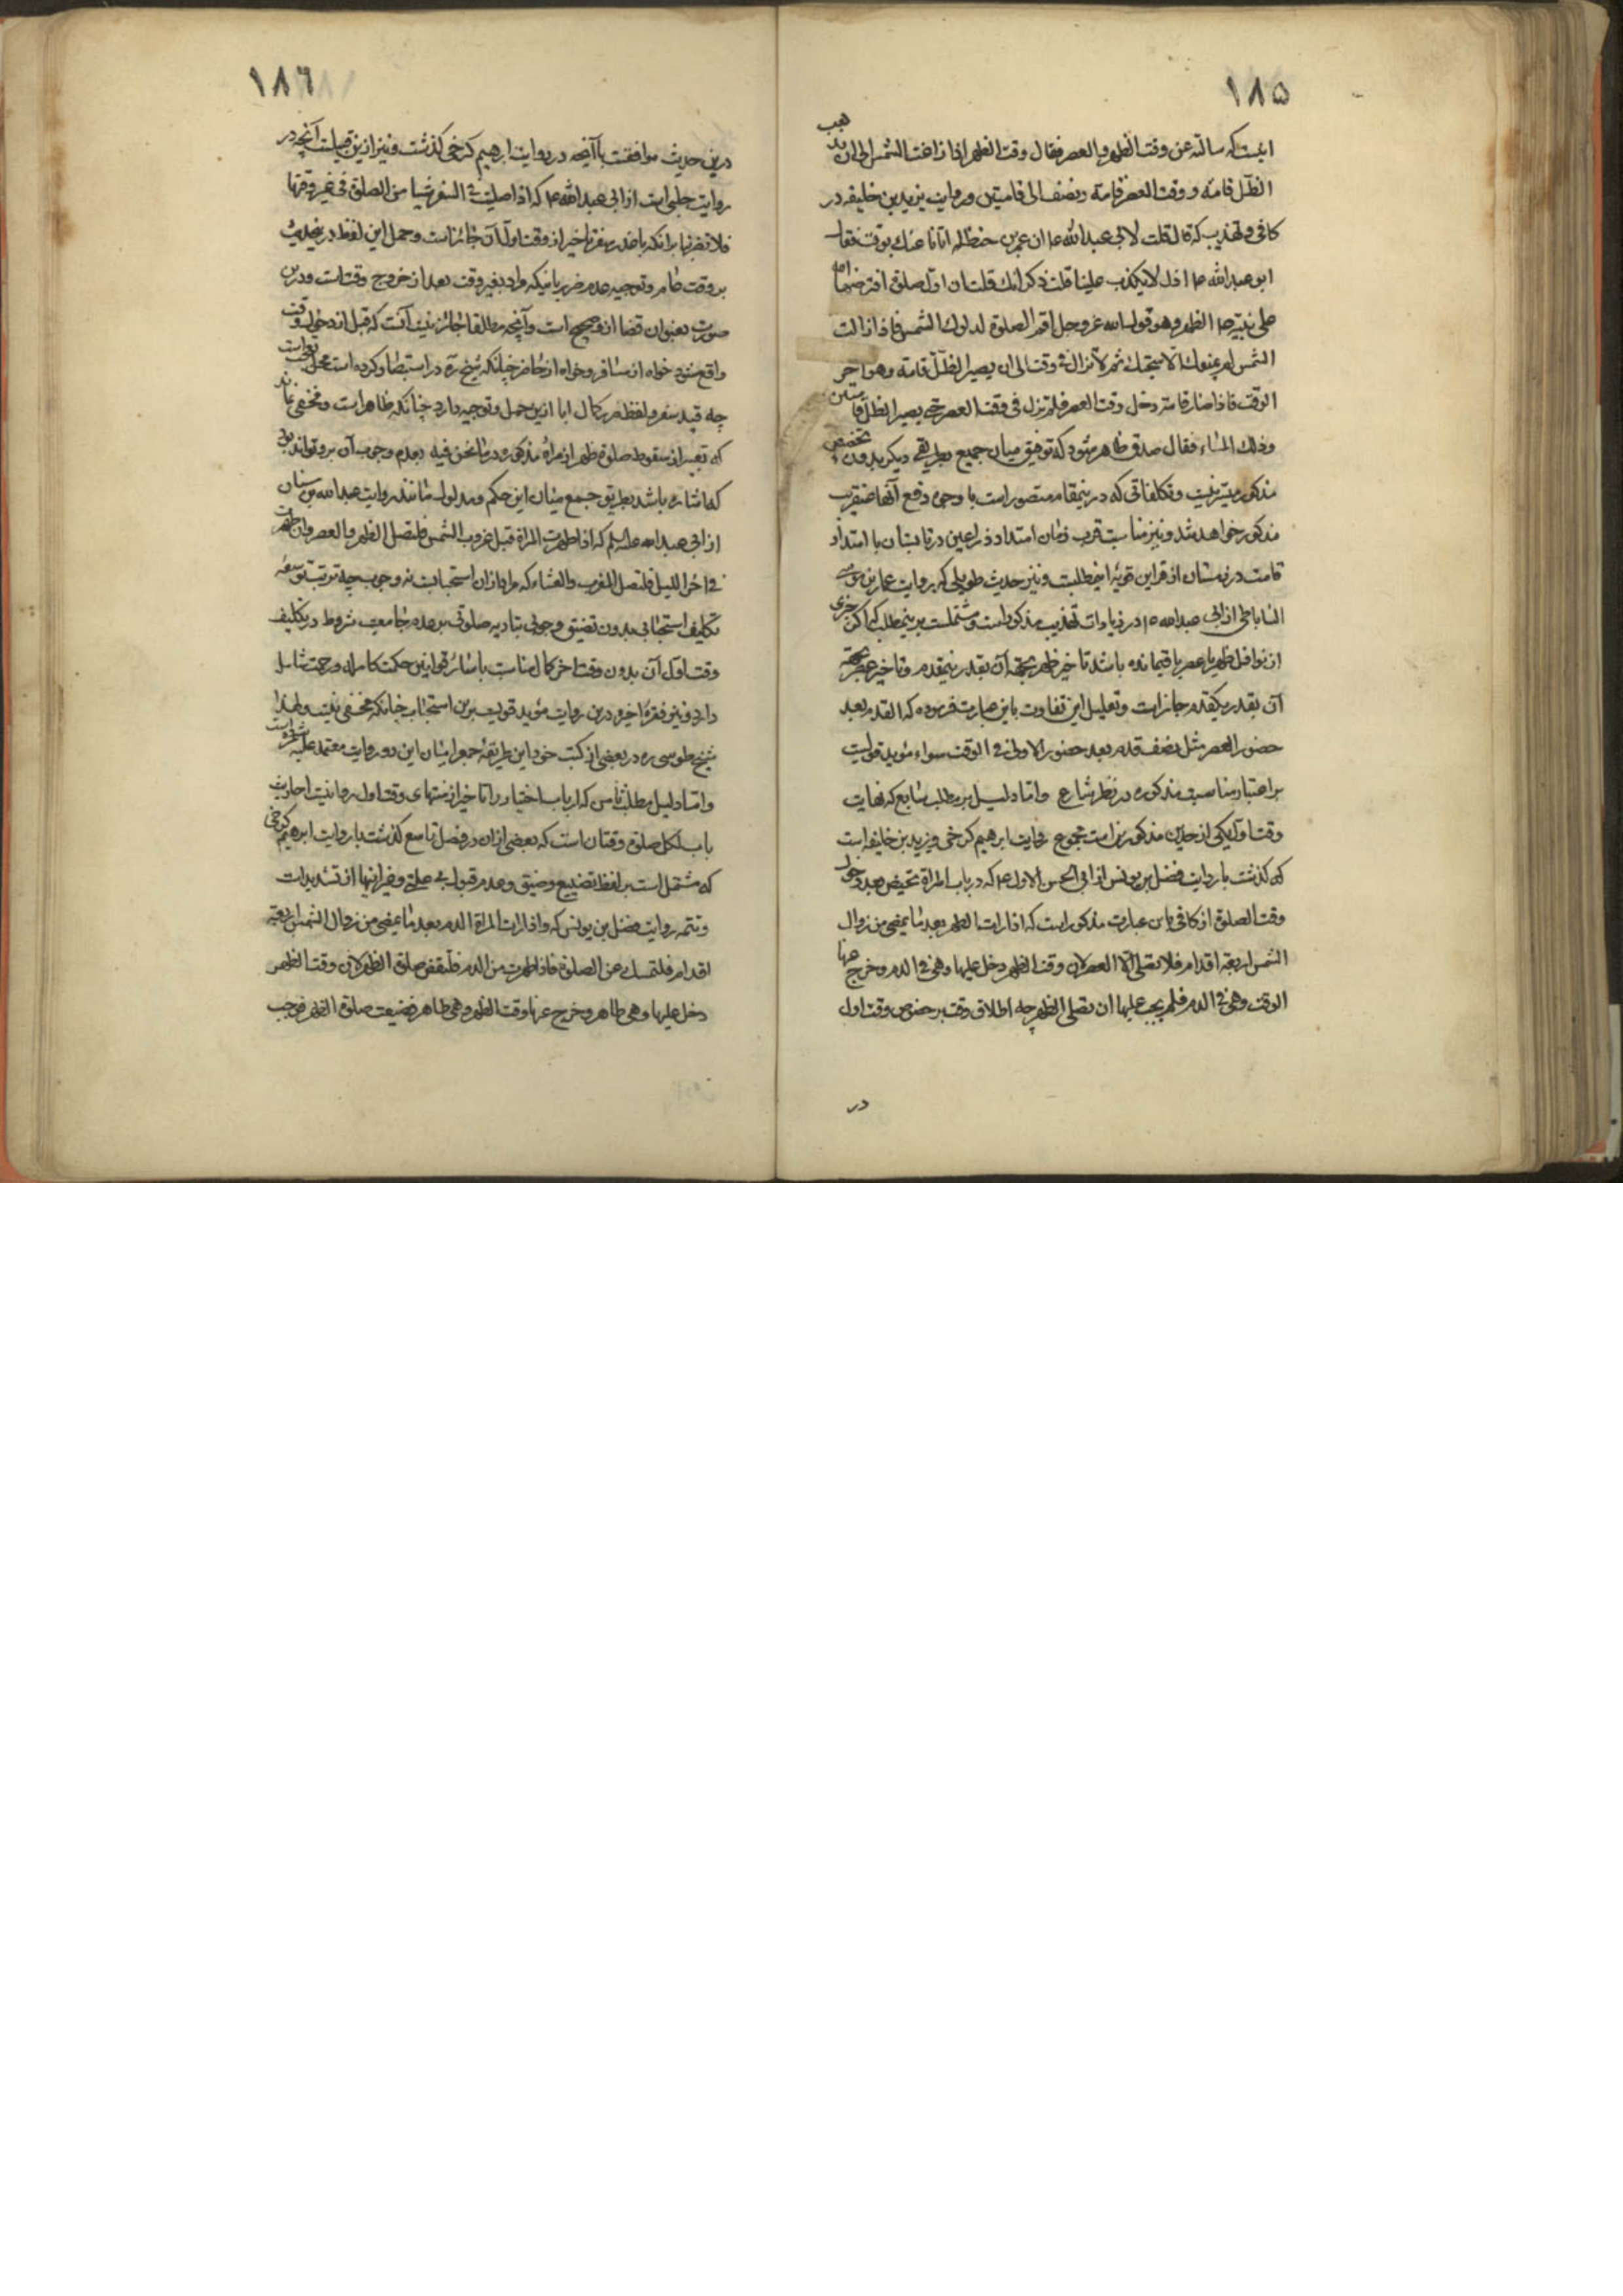 ١٨٥
اینست که سالته عن وقت الظهر و العصر فقال وقت الظهر اذا زاغت الشمس الی ان یذهب
الظل قامة و وقت العصر قامة و نصف الی قامتین و روایت یزید بن خلیفه در
کافی و تهذیب که قال قلت لابی عبدالله ع ان عمر بن حنظله اتانا عنک بوقت فقال
ابو عبدالله ع اذن لا یکذب علینا قلت ذکر انک قلت ان اول صلوة افترضها الله
علی نبیه ص الظهر و هو قول الله عز و جل اقم الصلوة لدلوک الشمس فاذا زالت
الشمس لم یمنعک الا سبحتک ثم لا تزال فی وقت الی ان یصیر الظل قامة و هو آخر
الوقت فاذا صار قامة دخل وقت العصر فلم تزل فی وقت العصر حتی یصیر الظل قامتین
و ذلک المساء فقال صدق ظاهر میشود که توفیق میان جمیع بطریقی دیکر بدون تخصیص
مذکور میسر نیست و تکلفاتی که درینمقام متصور است با وجوه دفع آنها عنقریب
مذکور خواهد شد و نیز مناسبت قرب زمان امتداد ذراعین در تابستان با امتداد
قامت در زمستان از قراین قویه اینمطلبست و نیز حدیث طویلی که بروایت عمار بن موسی
الساباطی از ابی عبدالله ع در زیادات تهذیب مذکور است و مشتملست برینمطلب که اکر جزی
از نوافل ظهر یا عصر باقیمانده باشد تاخیر ظهر بجهة آن بقدر نیمقدم و تاخیر عصر بجهة
آن بقدر یکقدم جایز است و تعلیل این تفاوت باین عبارت فرموده که القدم بعد
حضور العصر مثل نصف قدم بعد حضور الاولی فی الوقت سواء مؤید قولیست
بر اعتبار مناسبت مذکوره در نظر شارع و اما دلیل بر مطلب سابع که نهایت
وقت اول یکی از حدین مذکورین است مجموع روایت ابرهیم کرخی و یزید بن خلیفه است
که کذشت با روایت فضل بن یونس از ابی الحسن الاول ع که در باب المراة تحیض بعد دخول
وقت الصلوة از کافی باین عبارت مذکور است که اذا رات الطهر بعد ما یمضی من زوال
الشمس اربعة اقدام فلا تصلی الا العصر لان وقت الظهر دخل علیها و هی فی الدم و خرج عنها
الوقت و هی فی الدم فلم یجب علیها ان تصلی الظهر چه اطلاق وقت بر خصوص وقت اول
در
١٨٦
درین حدیث موافقست باآنچه در روایت ابرهیم کرخی کذشت و نیز ازین قبیلست آنچه در
روایت حلبی است از ابی عبدالله ع که اذا صلیت فی السفر شیا من الصلوة فی غیر وقتها
فلا تضر بنابرانکه باعذر سفر تاخیر از وقت اول آن جائز است و حمل این لفظ درینحدیث
بر وقت عام و توجیه عدم ضرر باینکه مراد بغیر وقت بعد از خروج وقت است و درین
صورت بعنوان قضا از و صحیح است و آنچه مطلقا جائز نیست آنست که قبل از دخول وقت
واقع شود خواه از مسافر و خواه از حاضر چنانکه شیخ ره در استبصار کرده است محل تعجب است
چه قید سفر و لفظ بر کمال ابا ازین حمل و توجیه دارد چنانکه ظاهر است و مخفی نماند
که تعبیر از سقوط صلوة ظهر از مراة مذکوره در ما نحن فیه بعدم وجوب آن برو تواند بود
که اشاره باشد بطریق جمع میان این حکم و مدلول مانند روایت عبدالله بن سنان
از ابی عبدالله علیه السلم که اذا طهرت المراة قبل غروب الشمس فلتصل الظهر و العصر و ان طهرت
فی اخر اللیل فلتصل المغرب و العشاء که مراد از ان استحبابست نه وجوب چه ترتب توسعه
تکلیف استحبابی بدون تضیق وجوبی بتادیه صلوتی بر عدم جامعیت شروط در تکلیف
وقت اول آن بدون وقت اخر کمال مناسبت باسائر قوانین حکمت کامله و رحمت شامله
دارد و نیز فقره اخیره درین روایت مؤید قویست برین استحباب چنانکه مخفی نیست و لهذا
شیخ طوسی ره در بعضی از کتب خود این طریقه جمع را میان این دو روایت معتمد علیه شمرده است
و اما دلیل مطلب ثامن که ارباب اختیار را تاخیر از منتهای وقت اول روا نیست احادیث
باب لکل صلوة وقتان است که بعضی ازان در فصل تاسع کذشت با روایت ابرهیم کرخی
که مشتمل است بر لفظ تضییع و ضیق و عدم قبول و غیر اینها از تشدیدات
و تتمه روایت فضل بن یونس که و اذا رات المراة الدم بعد ما یمضی من زوال الشمس اربعة
اقدام فلتمسک عن الصلوة فاذا طهرت من الدم فلتقض صلوة الظهر لان وقت الظهر
دخل علیها و هی طاهر و خرج عنها وقت الظهر و هی طاهر فضیعت صلوة الظهر فوجب